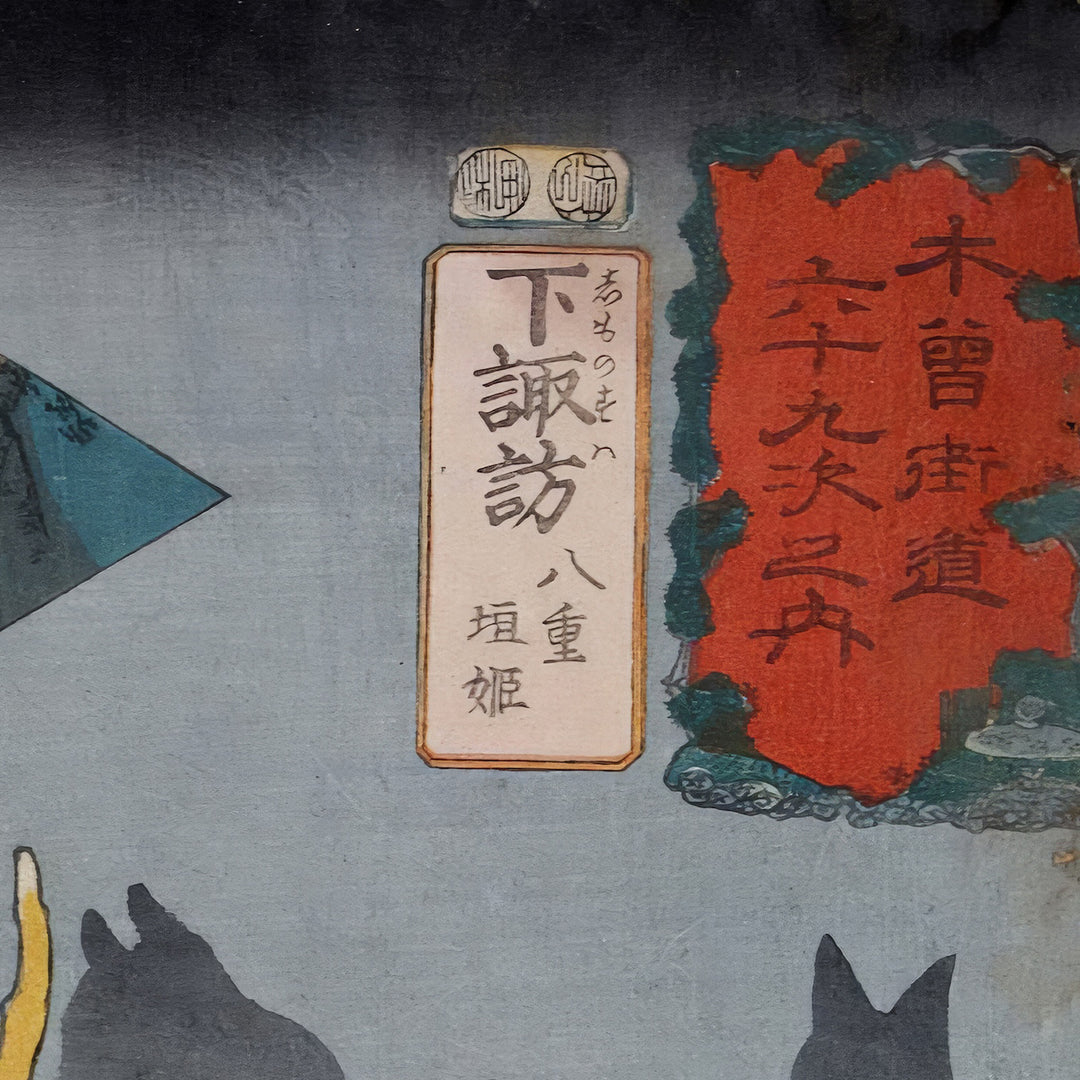 木曾街道
六十九次之内
しものすハ
下諏訪
八重
垣姫